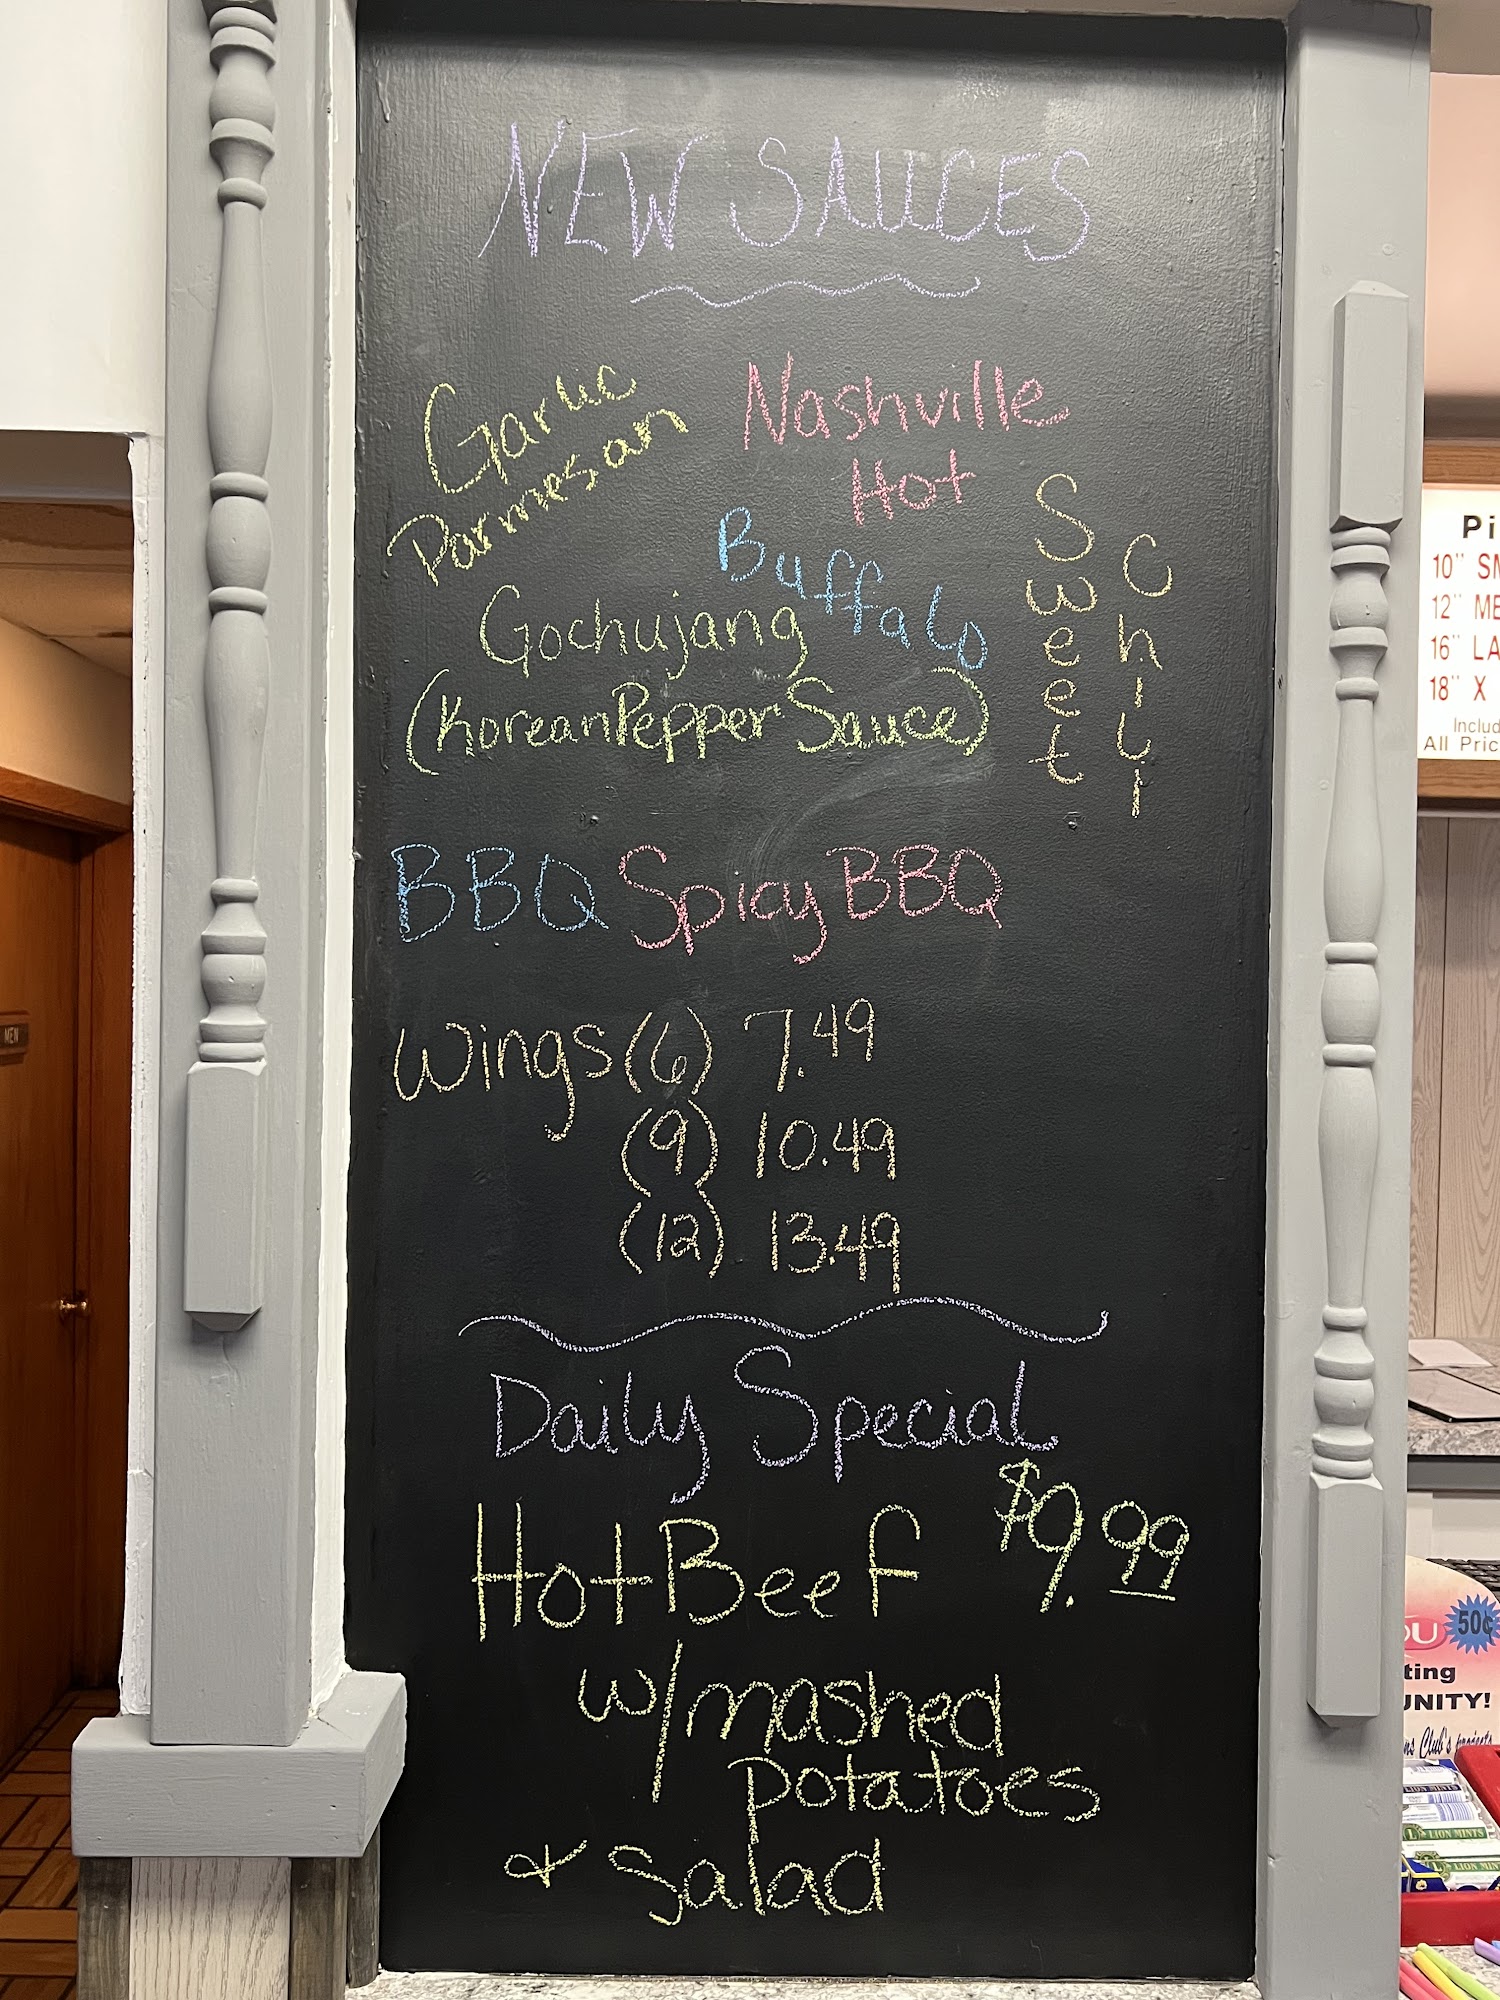 NEW SAUCES
Garlic
Parmesan
Nashville
Hot
Buffalo
Sweet
Chili
Gochujang
(Korean Pepper Sauce)
BBQ
Spicy BBQ
Wings (6) 7.49
(9) 10.49
(12) 13.49
Daily Special
Hot Beef $9.99
w/mashed
potatoes
& Salad
MEN
Pi
10" SM
12" ME
16" LA
18" X
Includ
All Pric
OU
50¢
ting
UNITY!
ns Club's projects
LION MINTS
LION MINTS